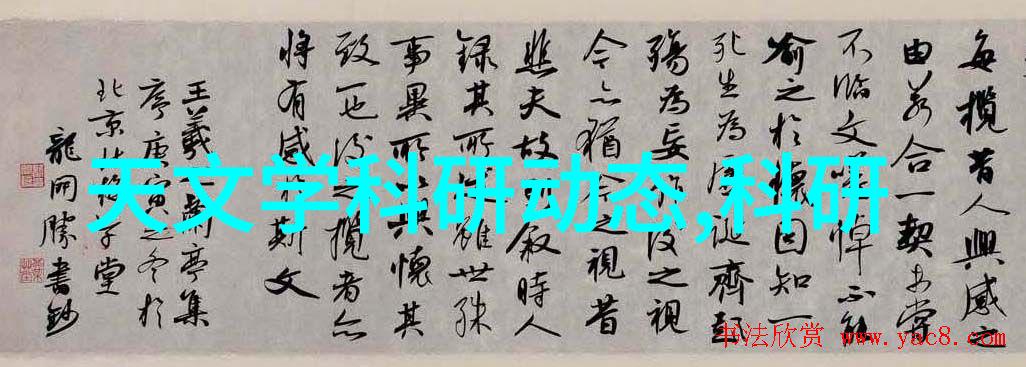 每攬昔人興感之
由若合一契未嘗
不臨文嗟悼不能
喻之於懷固知一
死生為虛誕齊彭
殤為妄作後之視
今亦猶今之視昔
悲夫故列敘時人
錄其所述雖世殊
事異所以興懷其
致一也後之攬者亦
將有感於斯文
王羲之蘭亭集
序庚寅之冬於
北京堂
龍開勝書鈔
天文学科研动态,科研
书法欣赏 www.yac8.com